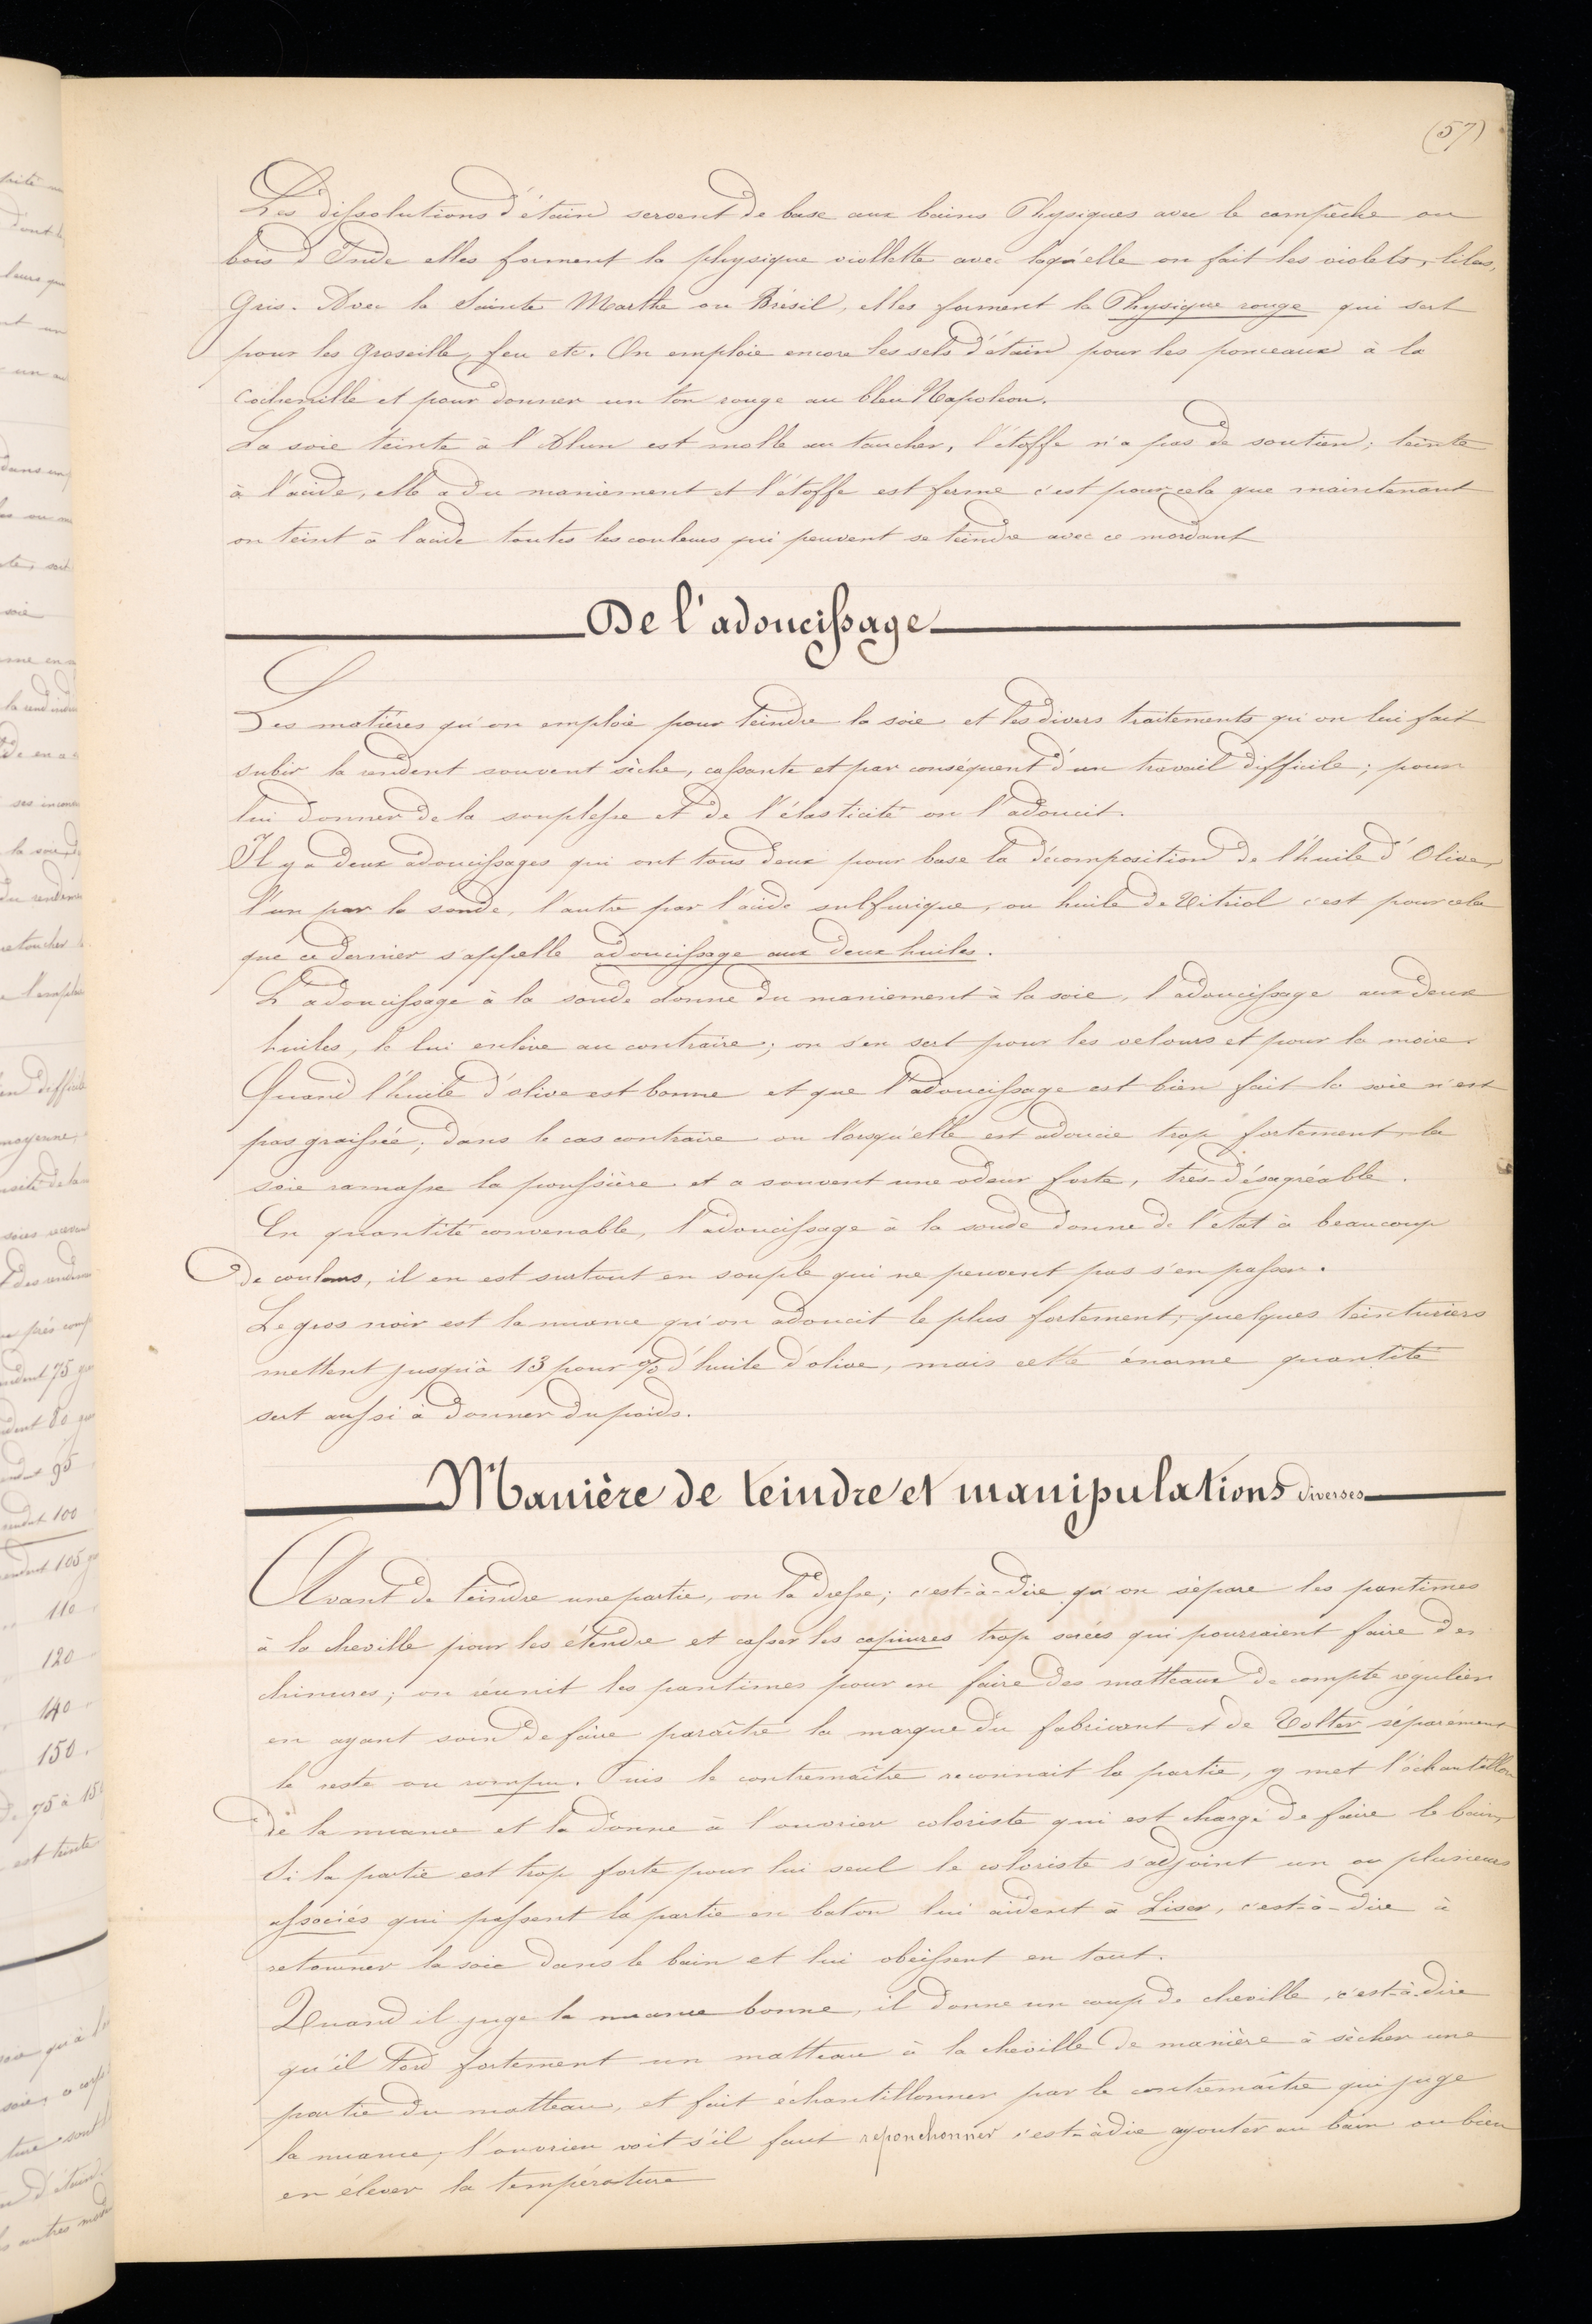 (57)
Les dissolutions d'étain servent de base aux bains Physiques avec le campêche ou
bois d'Inde elles forment la physique viollette avec laqu'elle on fait les violets, lilas,
Gris. Avec le Sainte Marthe ou Brésil, elles forment la Physique rouge qui sert
pour les Groseille, feu etc. On emploie encore les sels d'étain pour les ponceaux à la
Cochenille et pour donner un ton rouge au bleu Napoléon.
La soie teinte à l'Alun est molle au toucher, l'étoffe n'a pas de soutien; teinte
à l'acide, elle a du maniement et l'étoffe est ferme c'est pour cela que maintenant
on teint à l'acide toutes les couleurs qui peuvent se teindre avec ce mordant
De l'adoucissage
Les matières qu'on emploie pour teindre la soie et les divers traitements qu'on lui fait
subir la rendent souvent sèche, cassante et par conséquent d'un travail difficile; pour
lui donner de la souplesse et de l'élasticité on l'adoucit.
Il y a deux adoucissages qui ont tous deux pour base la décomposition de l'huile d'Olive,
l'un par la soude, l'autre par l'acide sulfurique, ou huile de Vitriol c'est pour cela
que ce dernier s'appelle adoucissage aux deux huiles.
L'adoucissage à la soude donne du maniement à la soie, l'adoucissage aux deux
huiles, le lui enlève au contraire; on s'en sert pour les velours et pour la moire.
Quand l'huile d'olive est bonne et que l'adoucissage est bien fait la soie n'est
pas graissée; dans le cas contraire ou lorsqu'elle est adoucie trop fortement, la
soie ramasse la poussière et a souvent une odeur forte, très-désagréable.
En quantité convenable, l'adoucissage à la soude donne de l'état à beaucoup
de couleurs, il en est surtout en souple qui ne peuvent pas s'en passer.
Le gros noir est la nuance qu'on adoucit le plus fortement; quelques teinturiers
mettent jusqu'à 13 pour % d'huile d'olive, mais cette énorme quantité
sert aussi à donner du poids.
Manière de teindre et manipulations diverses
Avant de teindre une partie, on la dresse; c'est-à-dire qu'on sépare les pantimes
à la cheville pour les étendre et casser les capiures trop serées qui pourraient faire des
chinures; on réunit les pantimes pour en faire des matteaux de compte régulier
en ayant soin de faire paraître la marque du fabricant et de Volter séparément
le reste ou rompu. Puis le contremaître reconnait la partie, y met l'échantillon
de la nuance et la donne à l'ouvrier coloriste qui est chargé de faire le bain,
Si la partie est trop forte pour lui seul le coloriste s'adjoint un ou plusieurs
associés qui passent la partie en baton lui aident à Liser, c'est-à-dire à
retourner la soie dans le bain et lui obéissent en tout.
Quand il juge la nuance bonne, il donne un coup de cheville, c'est-à-dire
qu'il tord fortement un matteau à la cheville de manière à sècher une
partie du matteau, et fait échantillonner par le contremaître qui juge
la nuance; l'ouvrier voit s'il faut reponchonner c'est-à-dire ajouter au bain ou bien
en élever la température